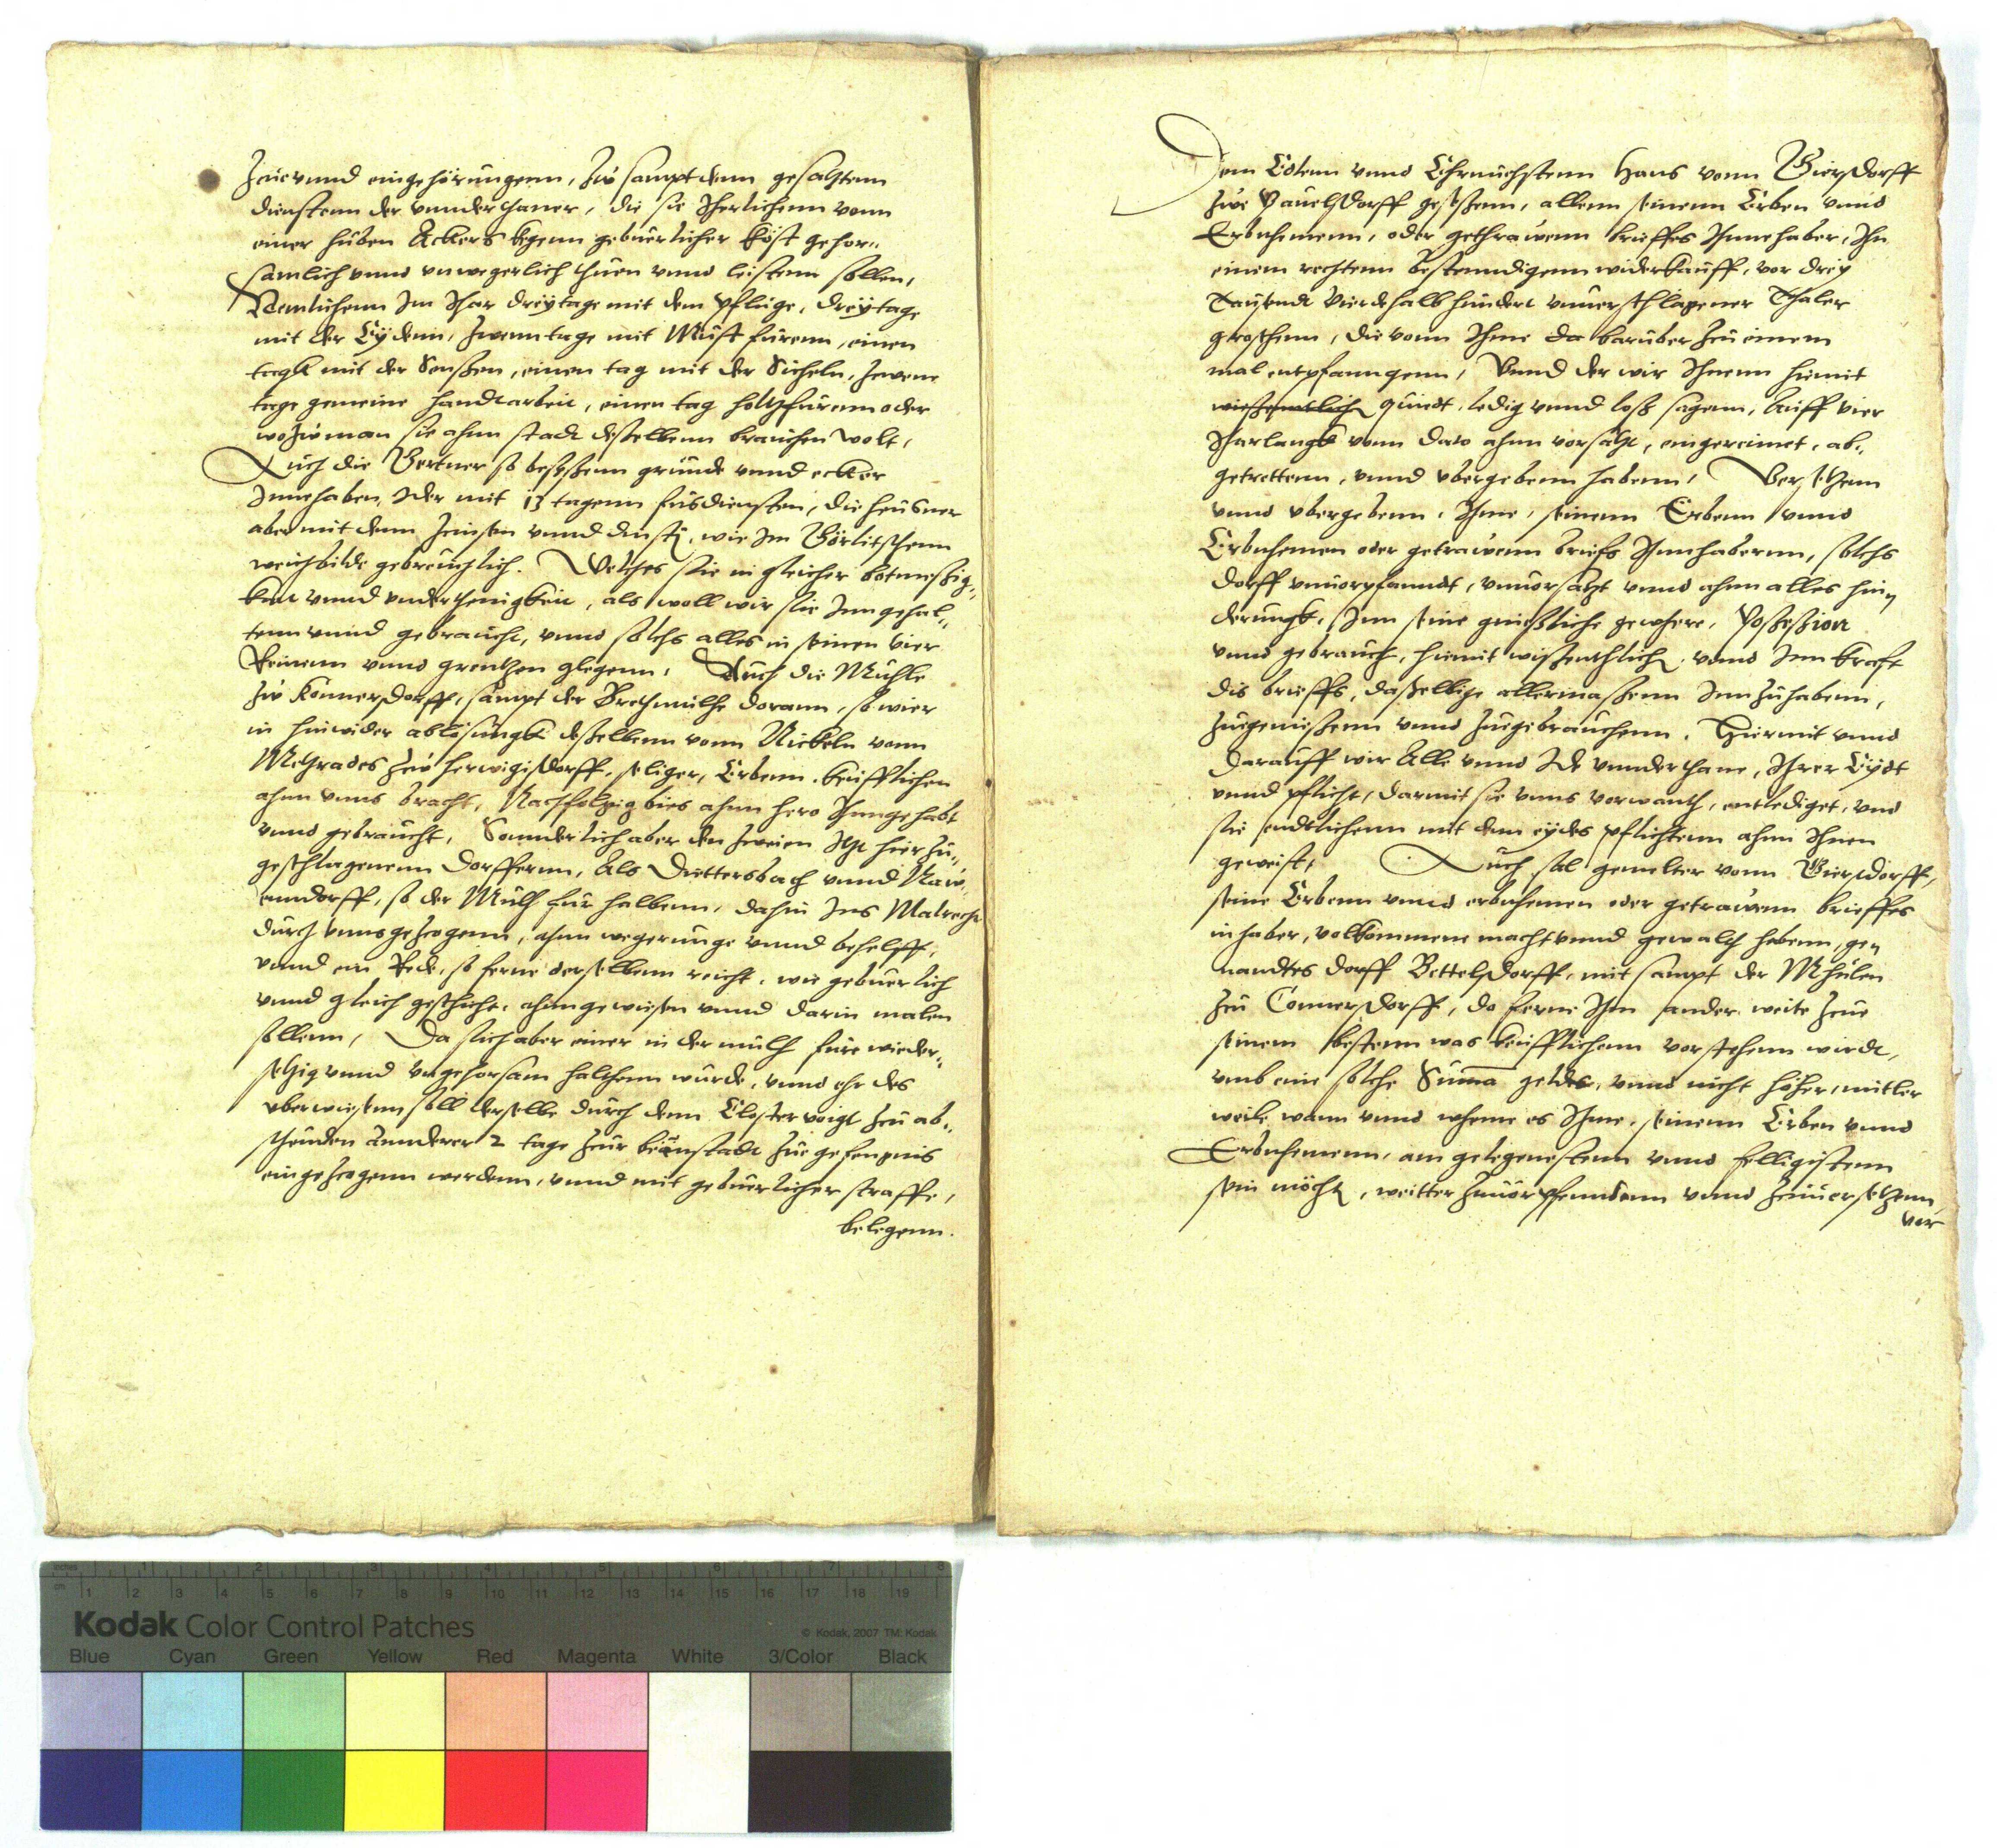 Zue vnnd eingehörungenn, Zw sampt denn gesatztenn
diensten der vnnderthaner, die sie Iherlichenn vonn
einer huben Ackers kegenn gebuerlicher kost gehor„
samlich vnnd vnwegerlich thuen vnnd leistenn sollen,
Nemlichenn Im Ihar drey tage mit dem pfluge, drey tage
mit der Eydenn, zwenn tage mit Mist furenn, einen
tagk mit der Senßen, einen tag mit der Sicheln, zwene
tage gemeine handtarbeit, einen tag holtzfurenn oder
wozw man sie ahnn stadt desselbenn brauchen wolt,
Auch die Gertner so besessenn grunde vnnd ecker
Innehaben, Ider mit 13 tagenn fusdiensten, die heusner
aber mit denn Zeinsen vnnd dinst, wie Im Görlitschenn
weichbilde gebreuchlich. Welches sie in gleicher botmeßig„
keit vnnd vnderthenigkeit, als woll wir sie Inn gehal„
tenn vnnd gebraucht, vnnd solchs alles in seinen vier
Reinenn vnnd grentzen glegenn, Auch die Muhle
zw Konnersdorff, sampt der Brethmulhe dorann, so wier
in hinwider ablösungk desselbenn vonn Nickeln vonn
Metzrades zew herwigisdorff, seliger, Erbenn keufflichen
ahnn vnns bracht, Nachfolgig bies ahnn hero Inngehabt
vnnd gebraucht, Sonnderlich aber den zweien Itzt hier zu„
geschlagenenn Dorffernn, Als Dittersbach vnnd Naw„
enndorff, so der Mulh fur halbenn, dahin Ins Malrecht
durch vnns gezogenn, ahnn wegerunge vnnd behelff,
vnnd ein Rede, so ferne derselbenn reicht, wie gebuerlich
vnnd gleich geschicht, ahnn gewiesen vnnd darin malen
sollenn, Da sich aber einer in der mulh fure wieder„
setzig vnnd vngehorsam halthenn wurde, vnnd ehr des
vberwiesenn soll derselbe durch denn Closter voigt zeu ab„
scheuden annderer 2 tage zeur beanstadt zue gefengnis
eingezogenn werdenn, vnnd mit gebuerlicher straffe,
belegenn.
Dem Edlenn vnnd Ehrnuhstenn Hans vonn Giersdorff
zwe Pauelsdorff gesessenn, allenn seinenn Erben vnnd
Erbnhemenn, oder gethrawenn brieffes Innehaber, Ihn
einem rechtenn bestenndigenn widerkauff, vor drey
Tausendt vierdehalb hundert vnuerschlagener Thaler
groschenn, die vonn Ihme da baruber zeu einem
mal entpfanngenn, Vnnd der wir Ihnenn hiemit
wissentlich quiedt, ledig vnnd loß sagenn, auff vier
Iharlangk vonn dato ahnn vorsatzt, eingereimet, ab„
getrettenn, vnnd vbergebenn habenn, Versetzenn
vnnd vbergebenn, Ihme, seinenn Erbenn vnnd
Erbnhemen oder getrawenn briefs Innhabernn, solchs
dorff vnuorpfanndt, vnuorsatzt vnnd ahnn alles hin„
derungk, Inn seine gnießliche gewhere, Possession
vnnd gebrauch, hiemit wissenthlich, vnnd Inn krafft
dis brieffs, dasselbige allermassenn Inn zuhabenn,
zuegeniessenn vnnd zuegebrauchenn. Hiermit vnnd
darauff wir Alle vnnd Ide vnnderthane, Ihrer Eydt
vnnd pflicht, darmit sie vnns vorwanth, entlediget, vnd
sie endtlichenn mit denn eydes pflichtenn ahnn Ihnen
geweist, Auch sal gemelter vonn Giersdorff,
seine Erbenn vnnd erbnhemen oder getrawenn brieffes
inhaber, volkommene macht vnnd gewalth habenn, ge„
nandtes dorff Bettelsdorff, mit sampt der Mhulen
zeu Connersdorff, do ferne Ihm ander weite zeue
seinem bestenn was keufflichenn vorstehenn wirdt,
vmb eine solche Suma geldes, vnnd nicht höher, mitler
weile wann vnnd wheme es Ihme, seinenn Erben vnnd
Erbnhemenn, am gelegenestenn vnnd felligistenn
sein möcht, weitter zuuorpfenndenn vnnd zeuuersetzenn,
vor